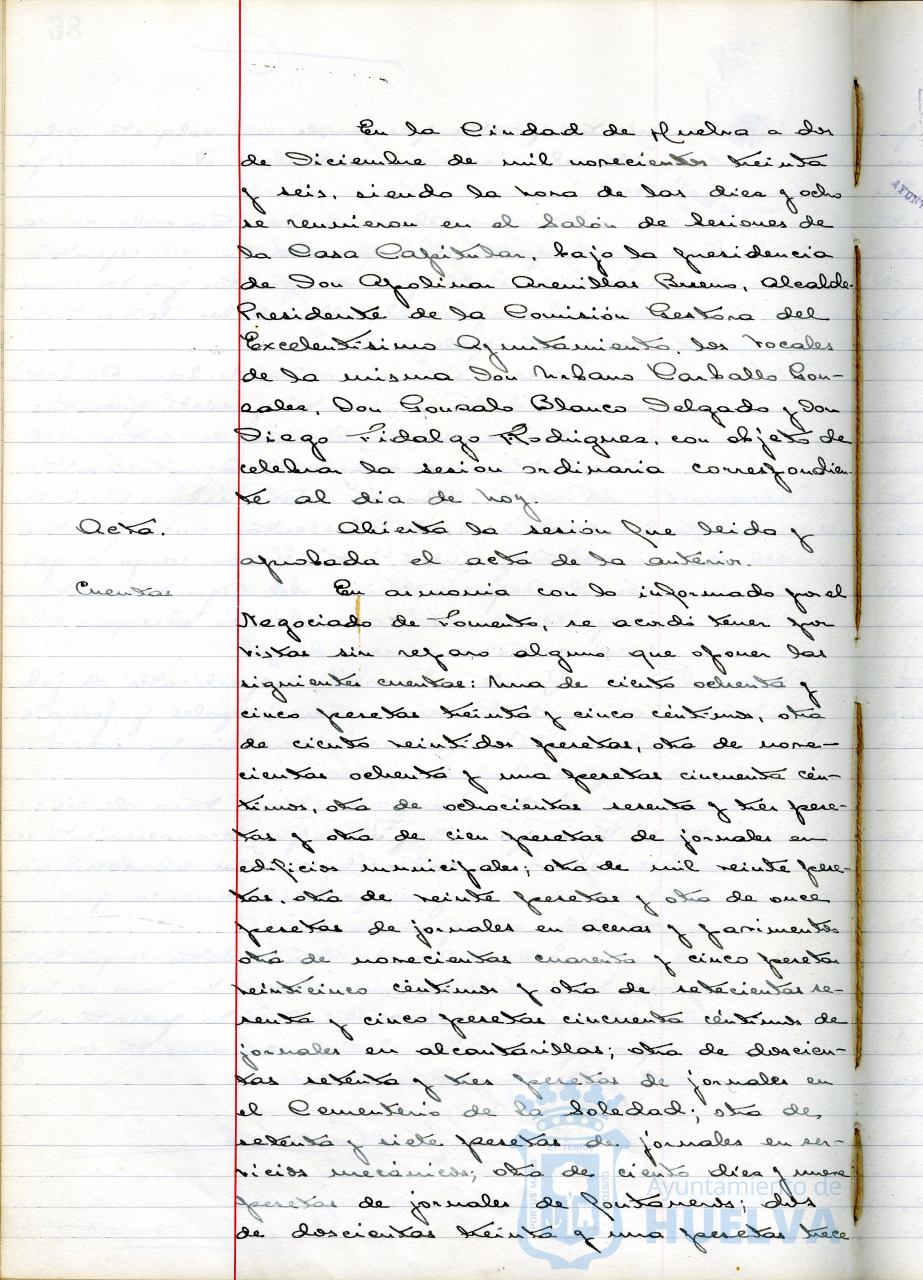 En la Ciudad de Huelva a dos
de Diciembre de mil novecientos treinta
y seis, siendo la hora de las diez y ocho
se reunieron en el Salón de Sesiones de
la Casa Capitular, bajo la presidencia
de Don Apolinar Arenillas Bueno, Alcalde-
Presidente de la Comisión Gestora del
Excelentísimo Ayuntamiento, los vocales
de la misma Don Urbano Carballo Gon-
zalez, Don Gonzalo Blanco Delgado y Don
Diego Fidalgo Rodriguez, con objeto de
celebrar la sesión ordinaria correspondien-
te al dia de hoy.
Acta.
Abierta la sesión fue leido y
aprobada el acta de la anterior.
Cuentas
En armonia con lo informado por el
Negociado de Fomento, se acordó tener por
vistas sin reparo alguno que oponer las
siguientes cuentas: Una de ciento ochenta y
cinco pesetas treinta y cinco céntimos, otra
de ciento veintidos pesetas, otra de nove-
cientas ochenta y una pesetas cincuenta cén-
timos, otra de ochocientas sesenta y tres pese-
tas y otra de cien pesetas de jornales en
edificios municipales; otra de mil veinte pese-
tas, otra de veinte pesetas y otra de once
pesetas de jornales en aceras y pavimentos
otra de novecientas cuarenta y cinco pesetas
veinticinco céntimos y otra de setecientas se-
senta y cinco pesetas cincuenta céntimos de
jornales en alcantarillas; otra de doscien-
tas setenta y tres pesetas de jornales en
el Cementerio de la Soledad; otra de
setenta y siete pesetas de jornales en ser-
vicios mecánicos; otra de ciento diez y nueve
pesetas de jornales de fontaneros; dos
de doscientas treinta y una pesetas trece
Ayuntamiento de
HUELVA